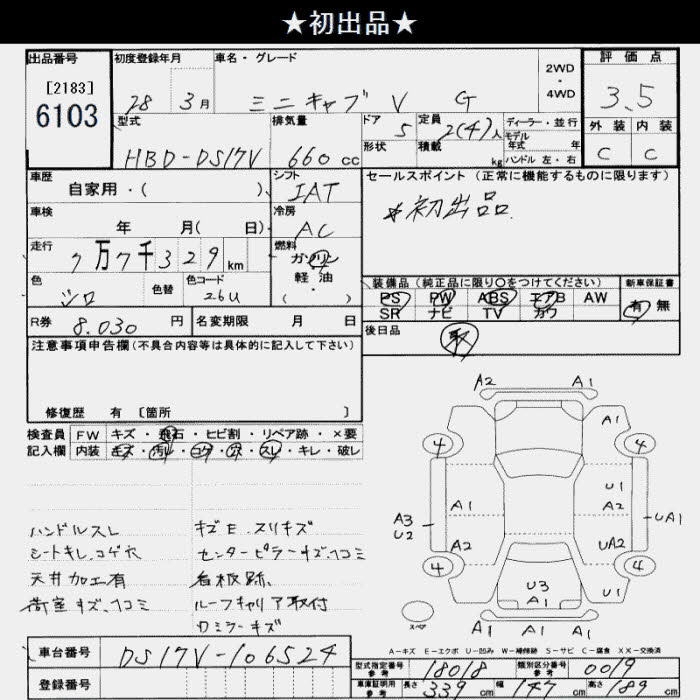 ★初出品★
出品番号
[2183]
6103
初度登録年月
28 3月
車名・グレード
ミニキャブ V G
2WD・4WD
評価点
3.5
外装 内装
C C
型式
HBD-DS17V
排気量
660 cc
ドア
5
形状
定員
2(4)人
積載 kg
ディーラー・並行
モデル年式 年
ハンドル 左・右
車歴
自家用・( )
シフト
IAT
セールスポイント (正常に機能するものに限ります)
*初出品.
車検
年 月( 日)
冷房
AC
走行
7万7千329km
燃料
ガソリン
軽・油
( ・ )
色
シロ
色替
色コード
26U
装備品 (純正品に限り〇をつけてください)
PS PW ABS エアB AW
SR ナビ TV カワ
新車保証書
有 無
R券 8.030 円
名変期限 月 日
後日品
取
注意事項申告欄(不具合内容等は具体的に記入して下さい)
修復歴 有 [箇所 ]
検査員記入欄
FW キズ・飛石・ヒビ割・リペア跡・×要
内装 キズ・汚レ・コゲ・穴・スレ・キレ・破レ
ハンドルスレ
シートキレ.コゲ穴
天井加工有
荷室キズ、ヘコミ
キズE.スリキズ
センターピラーキズ、ヘコミ
看板跡、
ルーフキャリア取付
ワミラーキズ
A2 A1
A1
4 4
U1
A1 A2
A3
U2
UA1
A2 UA2
4 4
U3
A1
U1
A1 A1 A1
スペア
A-キズ E-エクボ U-凹み W-補修跡 S-サビ C-腐食 XX-交換済
車台番号
DS17V-106524
登録番号
型式指定番号 参考 18018
類別区分番号 参考 0019
車庫証明用 参考 長さ 339 cm 幅 147 cm 高さ 189 cm